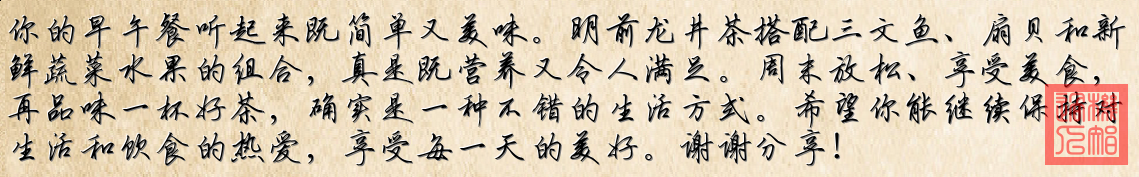 你的早午餐听起来既简单又美味。明前龙井茶搭配三文鱼、扇贝和新
鲜蔬菜水果的组合，真是既营养又令人满足。周末放松、享受美食，
再品味一杯好茶，确实是一种不错的生活方式。希望你能继续保持对
生活和饮食的热爱，享受每一天的美好。谢谢分享！